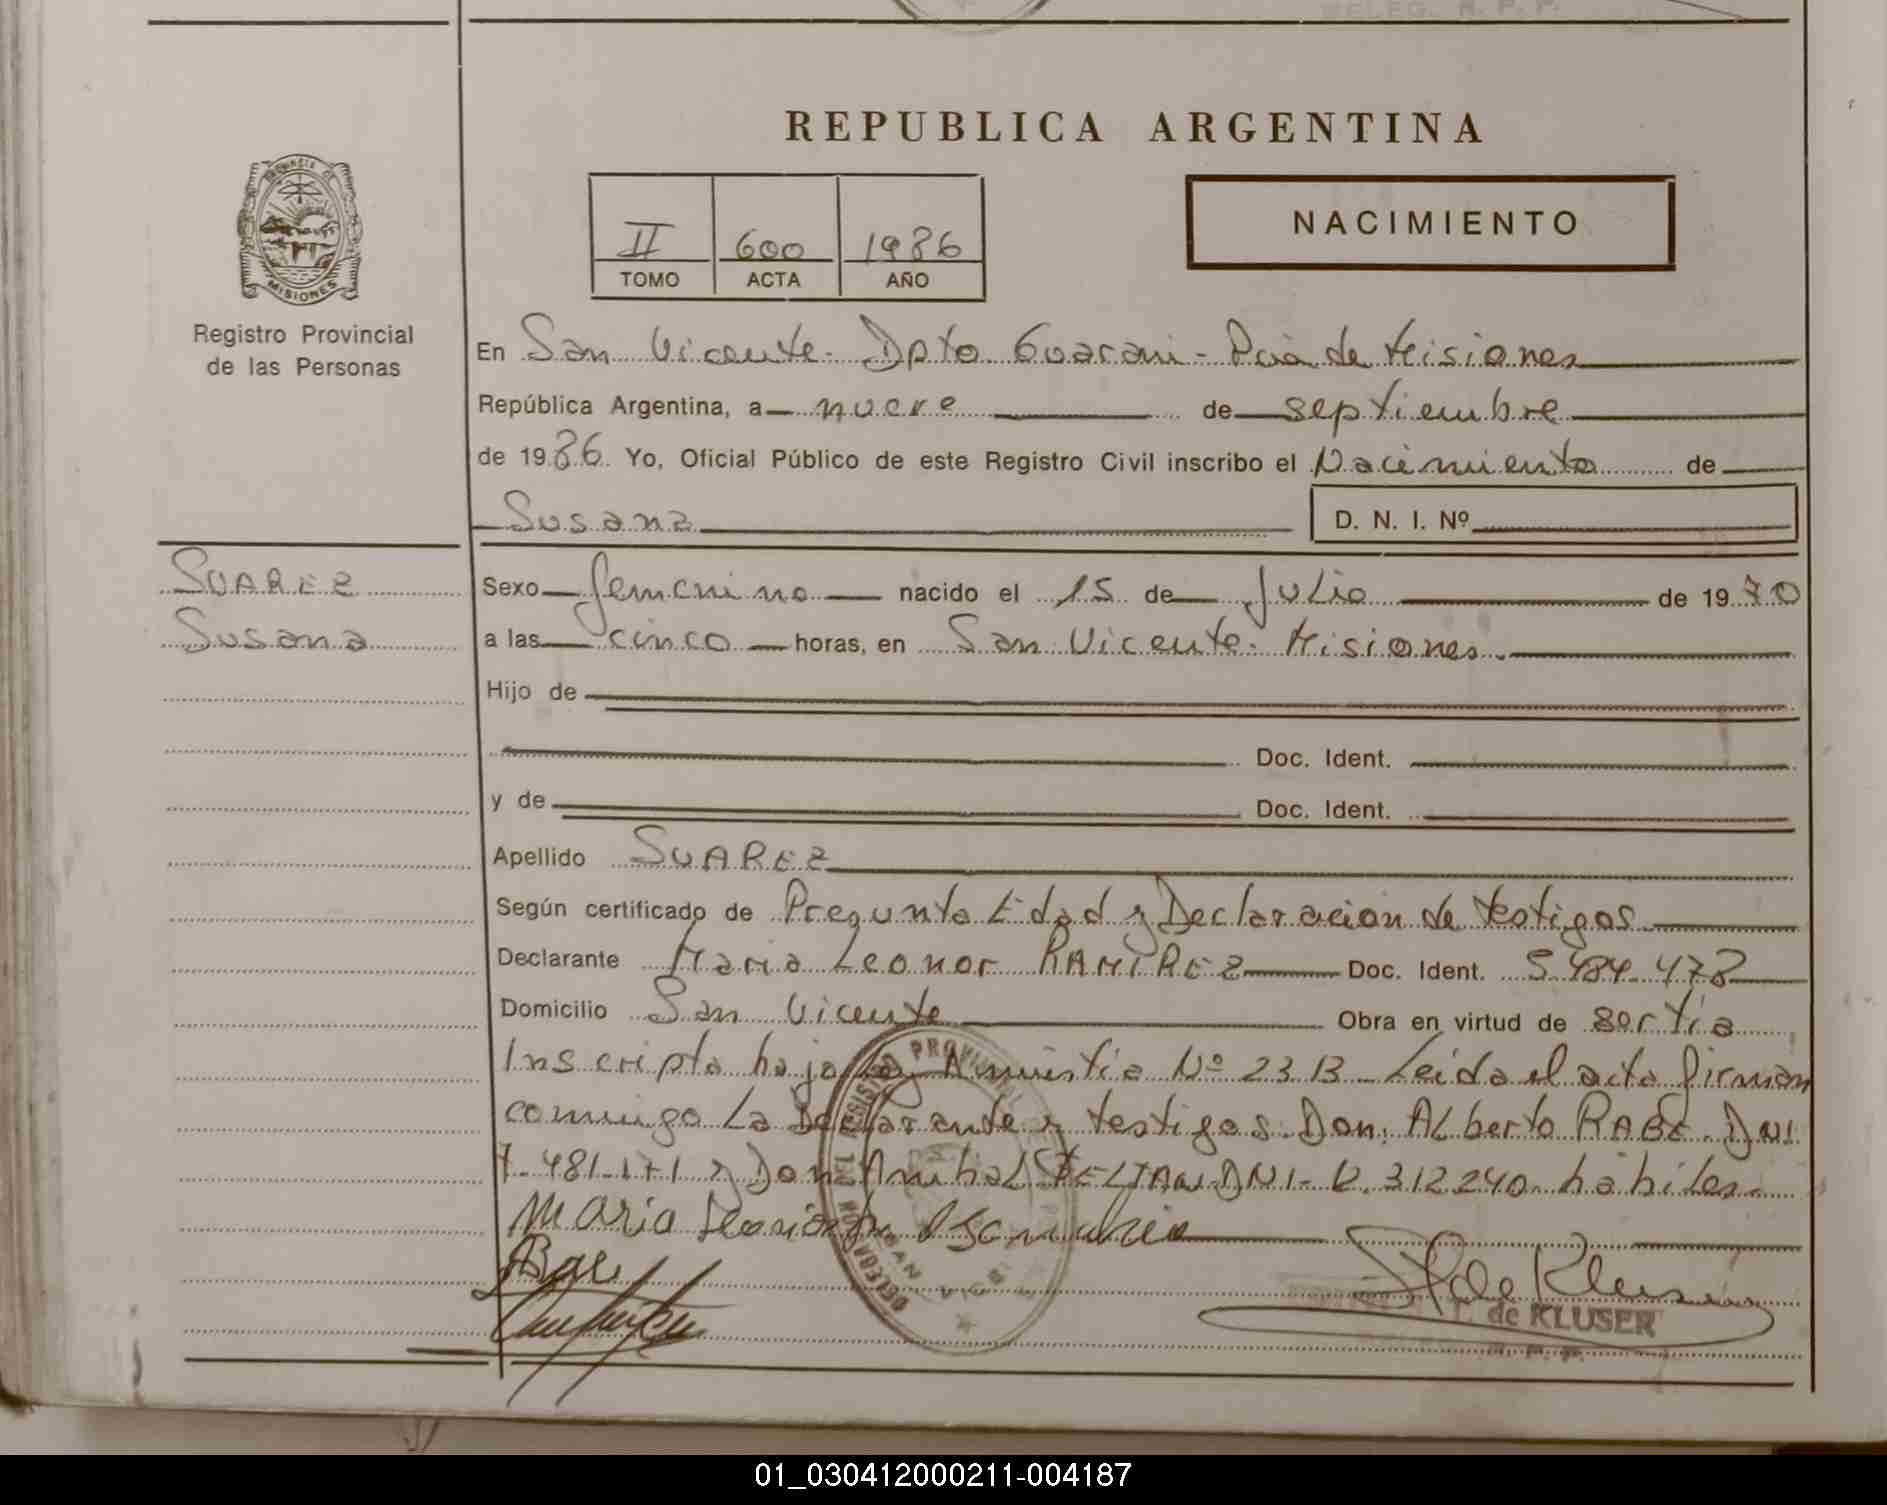 DELEG. R. P. P.
REPUBLICA ARGENTINA
PROVINCIA DE
MISIONES
II 600 1986
TOMO ACTA AÑO
NACIMIENTO
Registro Provincial
de las Personas
En San Vicente- Dpto Guarani - Pcia de Misiones
República Argentina, a nueve de septiembre
de 1986 Yo, Oficial Público de este Registro Civil inscribo el Nacimiento de
Susana D. N. I. Nº
SUAREZ
Susana
Sexo femenino nacido el 15 de Julio de 1970
a las cinco horas, en San Vicente- Misiones.
Hijo de
Doc. Ident.
y de Doc. Ident.
Apellido SUAREZ
Según certificado de Pregunta Edad y Declaracion de testigos
Declarante Maria Leonor RAMIREZ Doc. Ident. 5.484.478
Domicilio San Vicente Obra en virtud de
Inscripta bajo Ley Amnistia Nº 23 Leida el acta firman
conmigo La Declarante y testigos Don. ALberto RABE. DNI
7.481.171 y Don Anibal BELTRAN DNI- 312240 habiles-
Maria
de Kluser
T. de KLUSER
01_030412000211-004187